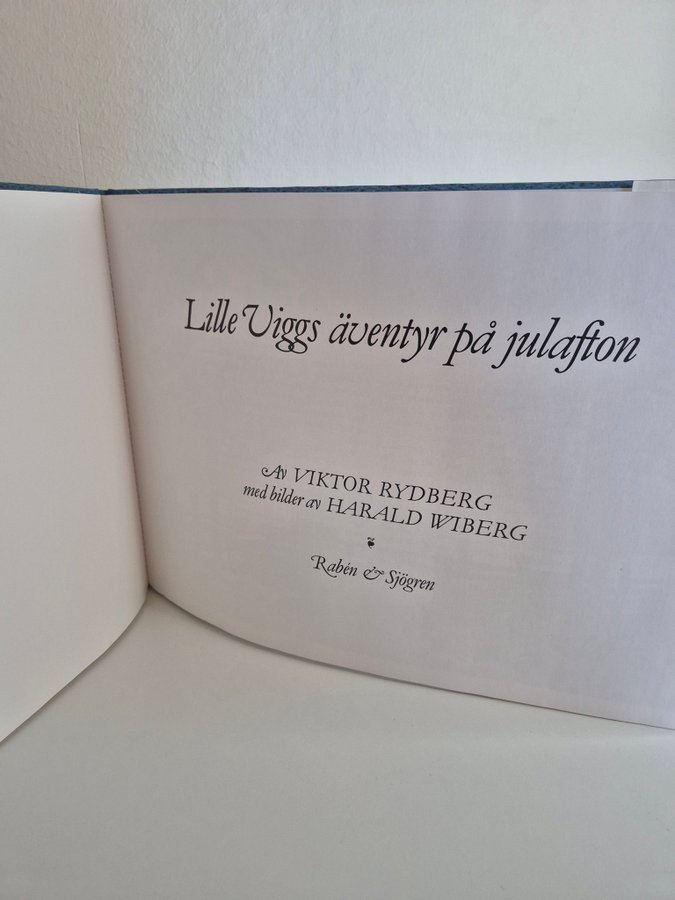 Lille Viggs äventyr på julafton
Av VIKTOR RYDBERG
med bilder av HARALD WIBERG
Rabén & Sjögren